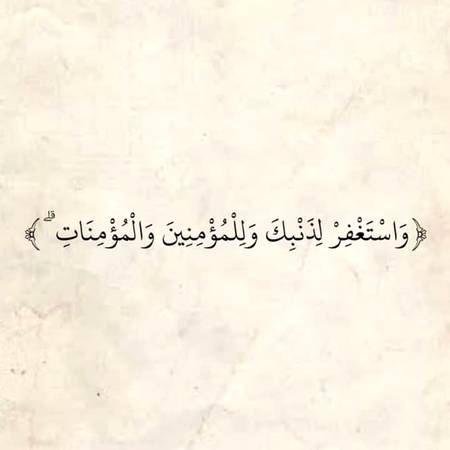 ﴿ وَاسْتَغْفِرْ لِذَنْبِكَ وَلِلْمُؤْمِنِينَ وَالْمُؤْمِنَاتِ ۗ ﴾